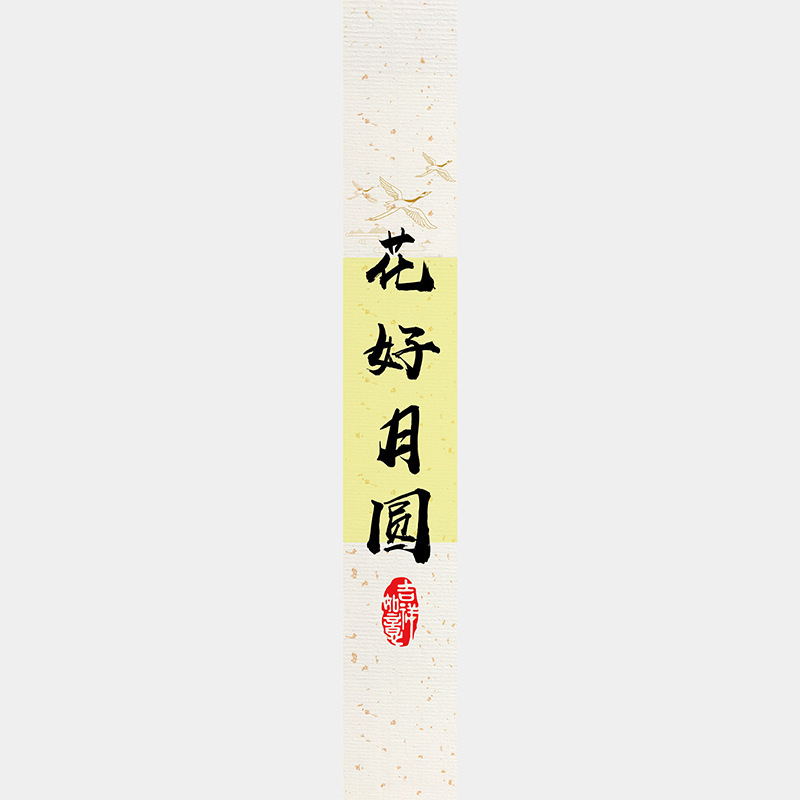 花好月圆
吉祥如意